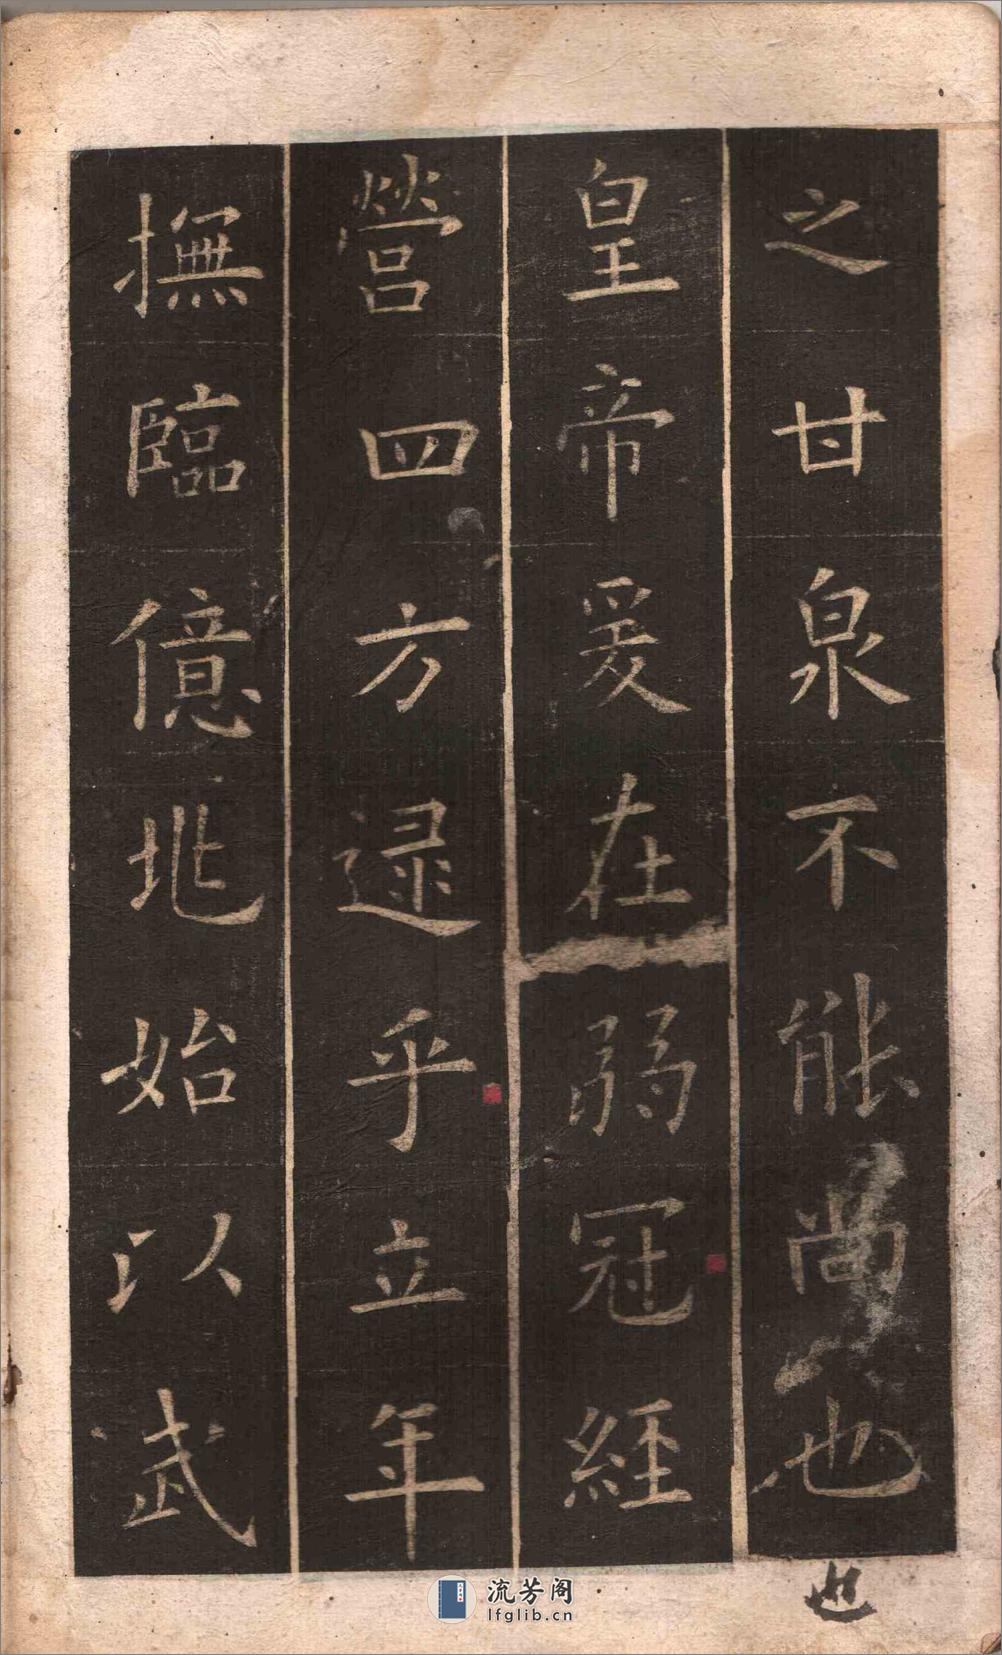 之甘泉不能尚也
皇帝爰在弱冠經
營四方逯乎立年
撫臨億兆始以武
也
流芳阁
lfglib.cn